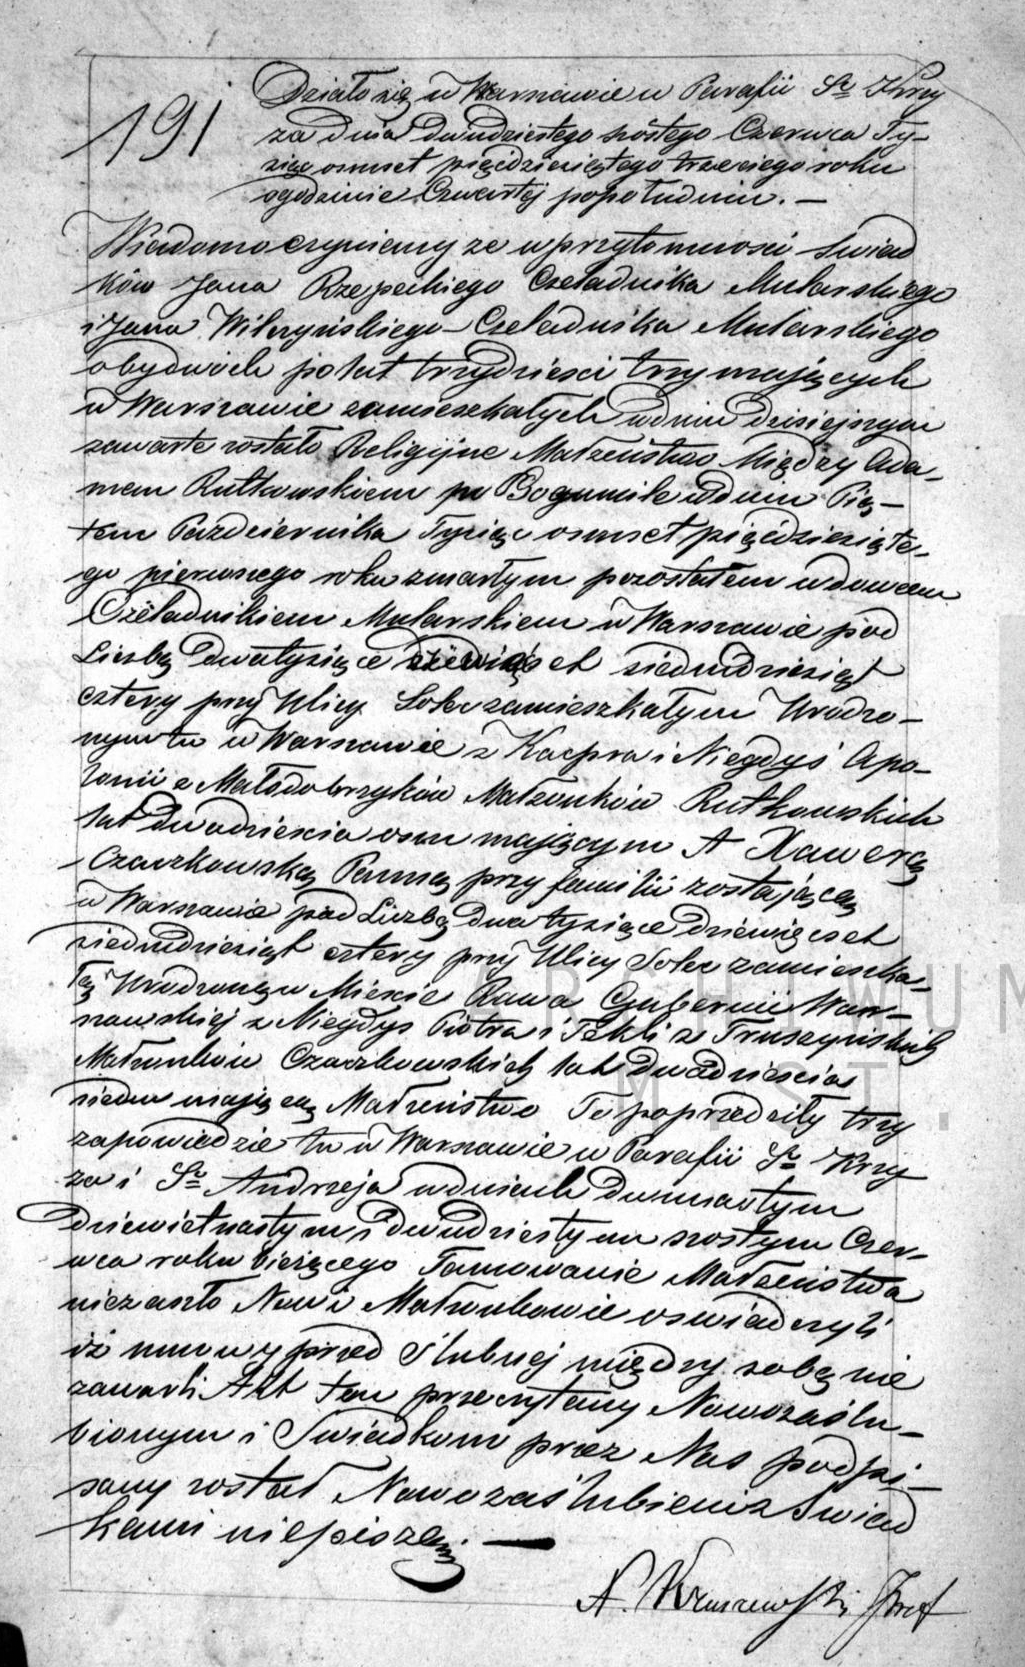 191
Działo się w Warszawie w Parafii Sº Krzy
ża dnia dwudziestego szóstego Czerwca Ty-
siąc osmset pięćdziesiątego trzeciego roku
o godzinie Czwartej popołudniu. —
Wiadomo czyniemy że w przytomności Świad
ków Jana Rzepeckiego Czeladnika Mularskiego
i Jana Wilczyńskiego Czeladnika Mularskiego
obydwóch po lat trzydzieści trzy mających
w Warszawie zamieszkałych w dniu dzisiejszym
zawarte zostało Religijne Małżeństwo Między Ada-
mem Rutkowskiem po Bogumile w dniu Pią-
tem Pazdziernika Tysiąc osmset pięćdziesiąte-
go pierwszego roku zmarłym pozostałem wdowcem
Czeladnikiem Mularskiem w Warszawie pod
Liczbą Dwatysiące dziewięćset siedmdziesiąt
cztery przy Ulicy Solec zamieszkałym Urodzo-
nym tu w Warszawie z Kacpra i Niegdyś Apo-
lonii z Małodobrzyków Małżonków Rutkowskich
lat Dwadzieścia osm mającym A Xawerą
Czaczkowską Panną przy familii zostającą
w Warszawie pod Liczbą dwa tysiące dziewięćset
siedmdziesiąt cztery przy Ulicy Solec zamieszka-
łą Urodzoną w Mieście Rawa Gubernii War-
szawskiej z Niegdyś Piotra i Tekli z Truszyńskich
Małżonków Czaczkowskich lat Dwadzieścia
siedm mającą Małżeństwo Te poprzedziły trzy
zapowiedzie tu w Warszawie w Parafii Sº Krzy
ża i Sº Andrzeja w dniach dwunastym
dziewietnastym i dwudziestym szostym Czer-
wca roku bieżącego Tamowanie Małżeństwa
niezaszło Nowi Małżonkowie oswiadczyli
iż umowy przed Slubnej między sobą nie
zawarli Akt ten przeczytany Nowozaślu-
bionym i Świadkom przez Nas podpi-
sany został Nowozaślubieni z Świad
kami niepiszą. —
ARCHIWUM
M.ST.